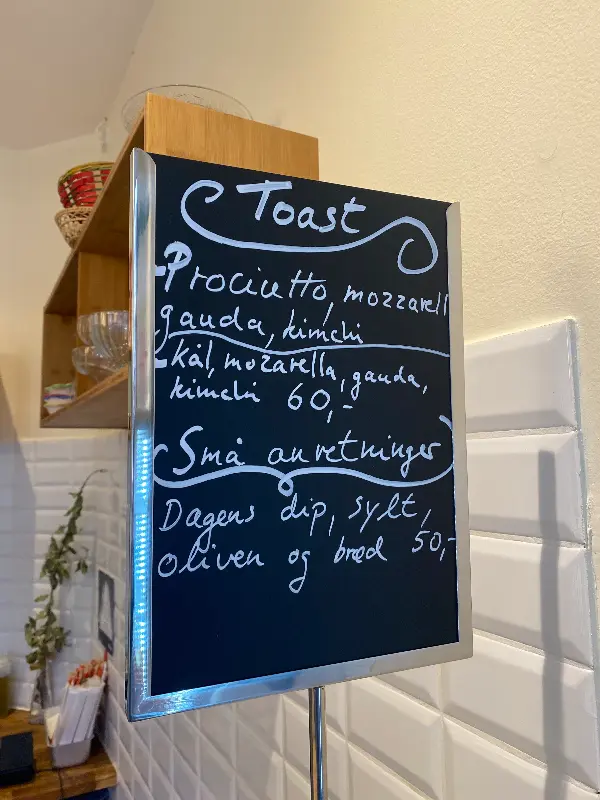 Toast
-Prociutto, mozzarell
gauda, kimchi
-kål, mozarella, gauda,
kimchi 60,-
Små anretninger
Dagens dip, sylt,
oliven og brød 50,-